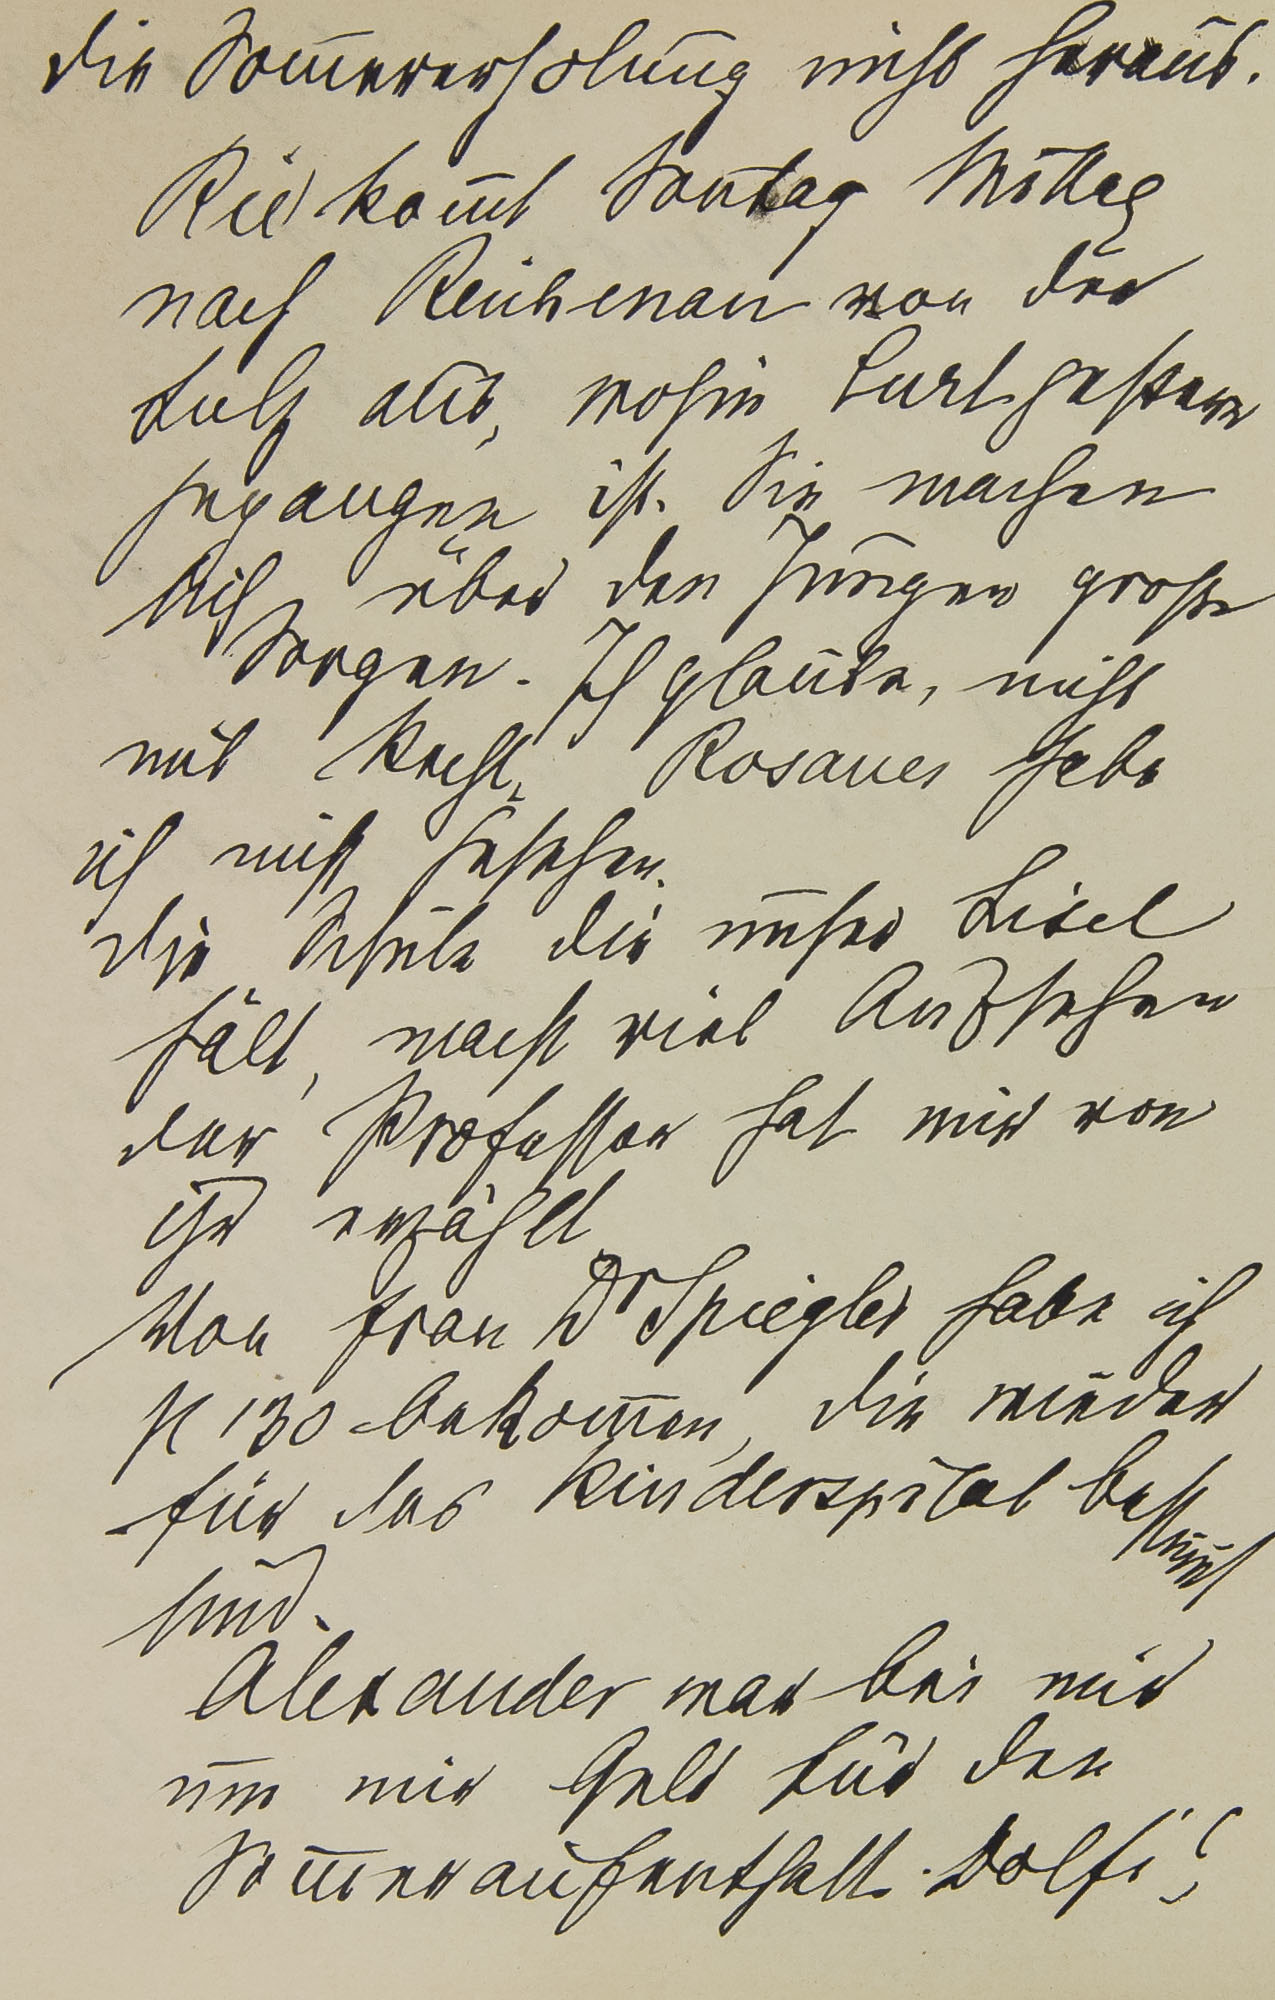 die Som̄ererholung nicht heraus.
Rie kom̄t Son̄tag Mittag
nach Reichenau von der
aus, wohin Curt gestern
gegangen ist. Sie machen
sich über den Jungen große
Sorgen. Ich glaube, nicht
mit Recht. Rosanes habe
ich nicht gesehen.
Die Schule die unser Lisel
hält, macht viel Aufsehen
der Professor hat mir von
ihr erzählt
Von Frau Dr Spiegler habe ich
fl 130 bekom̄en, die wieder
für das Kinderspital bestim̄t
sind.
Alexander war bei mir
um mir Geld für den
Som̄eraufenthalt Dolfi's